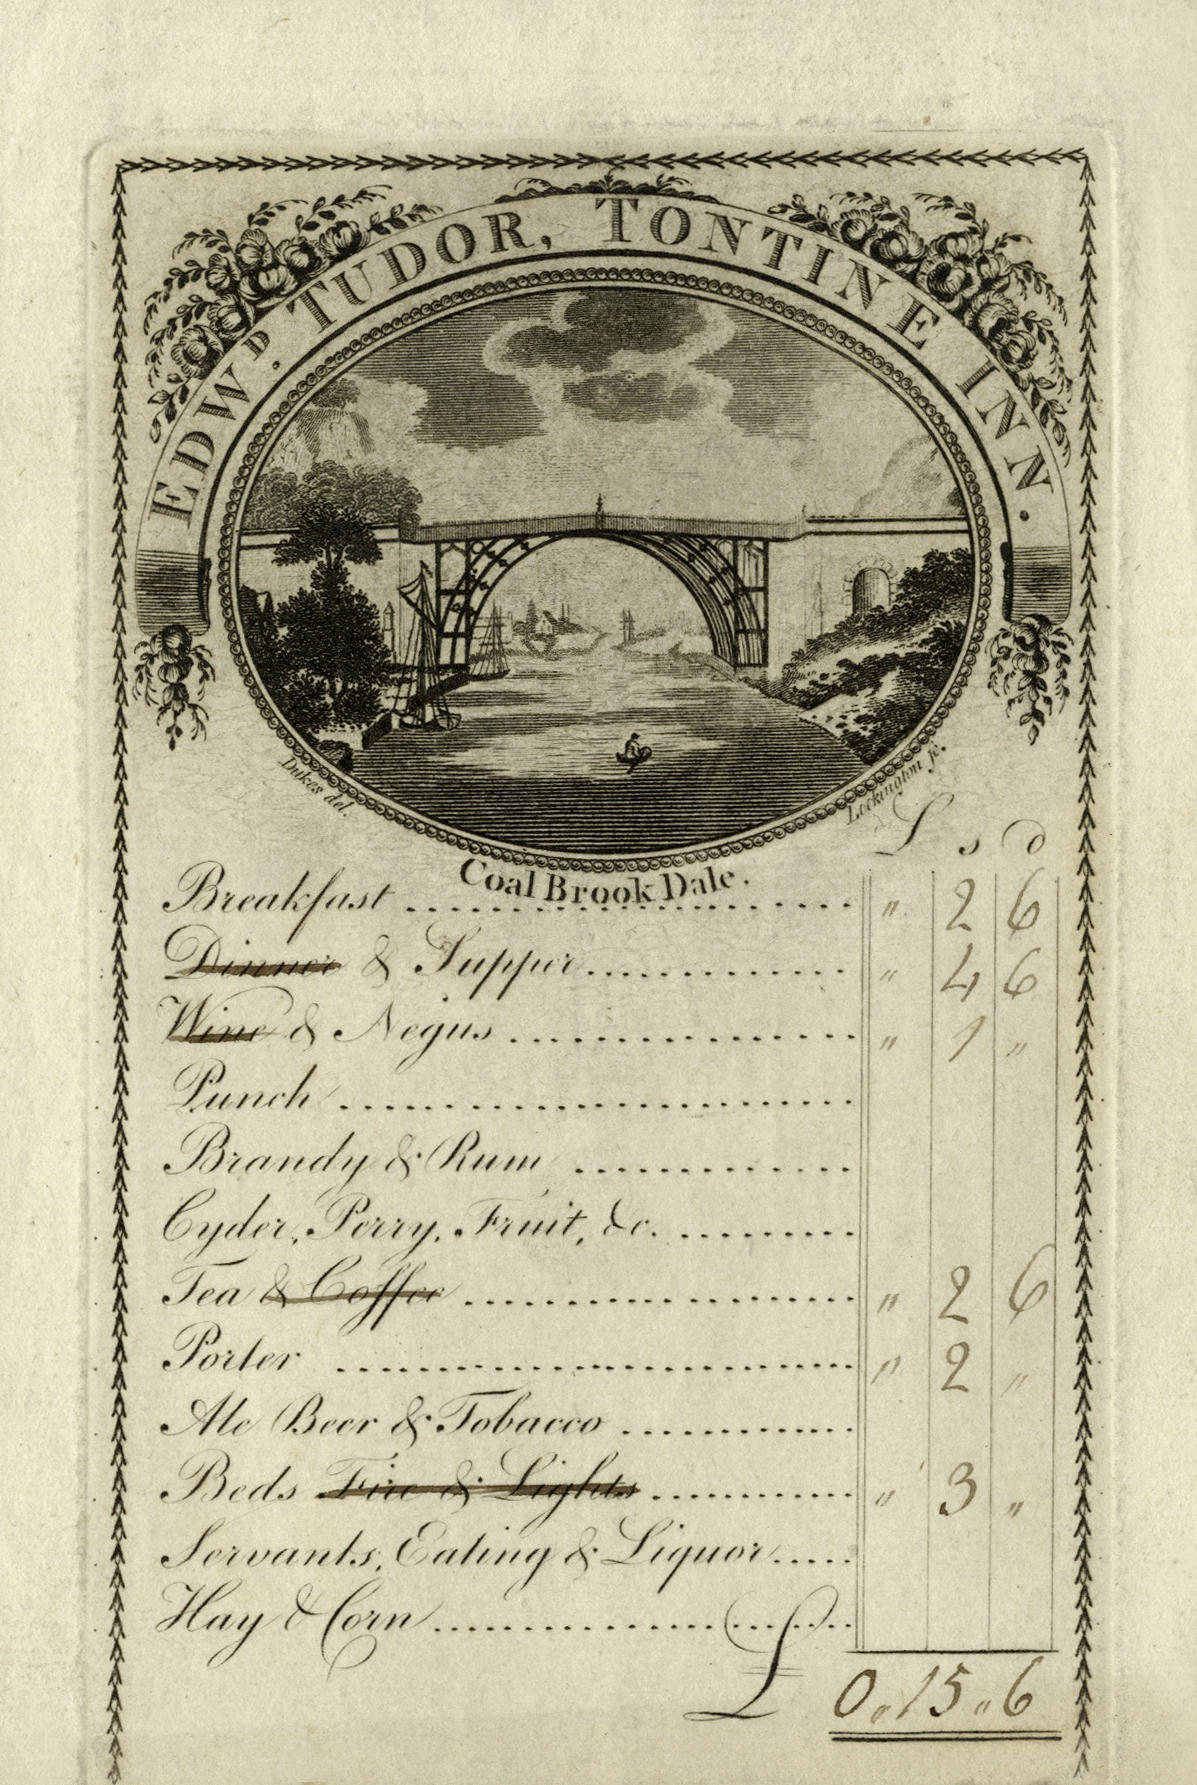 EDW.D TUDOR, TONTINE INN.
Dukes del.
Lockington fc.
Coal Brook Dale.
L s d
Breakfast .................... " 2 6
Dinner & Supper............. " 4 6
Wine & Negus ................ " 1 "
Punch ......................
Brandy & Rum .............
Cyder, Perry, Fruit, &c. .........
Tea & Coffee .................. " 2 6
Porter ........................ " 2 "
Ale Beer & Tobacco ............
Beds Fire & Lights .......... " 3 "
Servants, Eating & Liquor.....
Hay & Corn ......................
£ 0 " 15 " 6